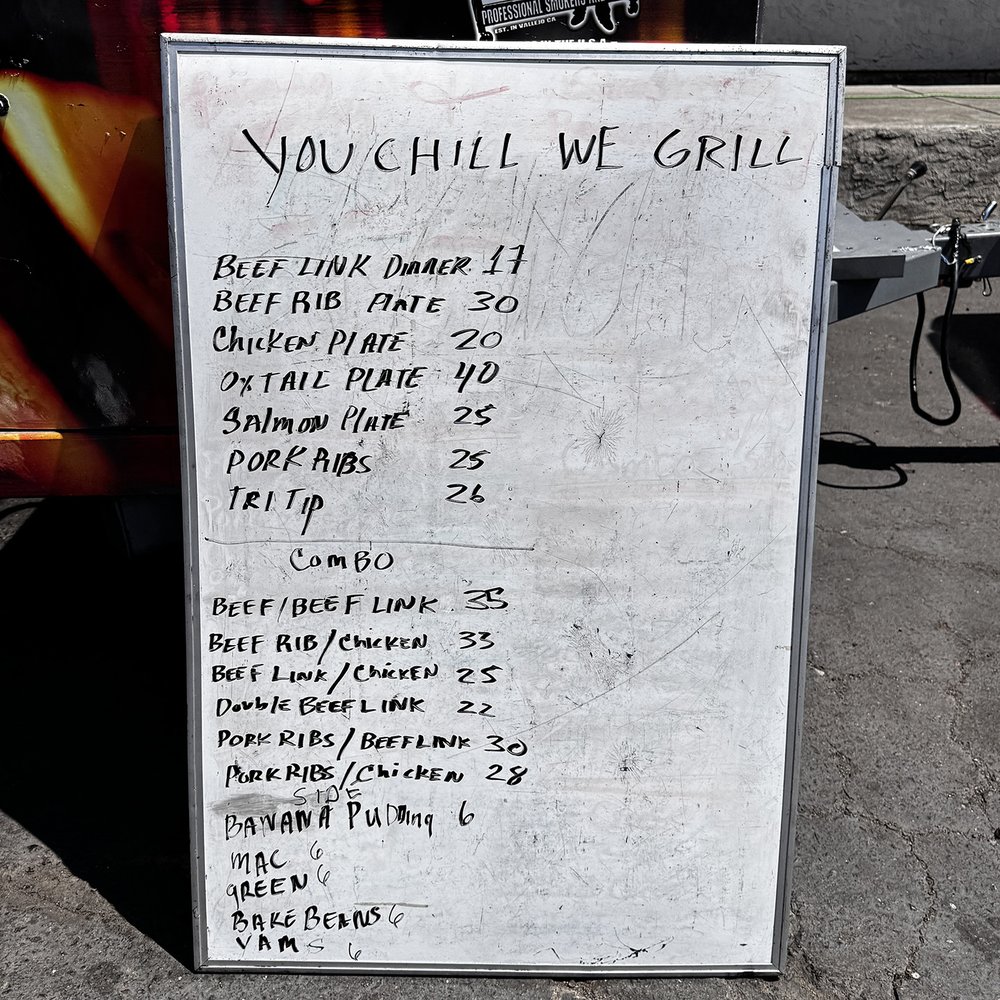 PROFESSIONAL SMOKERS
EST. IN VALLEJO CA
YOU CHILL WE GRILL
BEEF LINK DINNER 17
BEEF RIB PLATE 30
CHICKEN PLATE 20
OXTAIL PLATE 40
SALMON PLATE 25
PORK RIBS 25
TRI TIP 26
COMBO
BEEF/BEEF LINK 35
BEEF RIB/CHICKEN 33
BEEF LINK/CHICKEN 25
DOUBLE BEEF LINK 22
PORK RIBS/BEEF LINK 30
PORK RIBS/CHICKEN 28
SIDE
BANANA PUDDING 6
MAC 6
GREEN 6
BAKE BEANS 6
YAMS 6